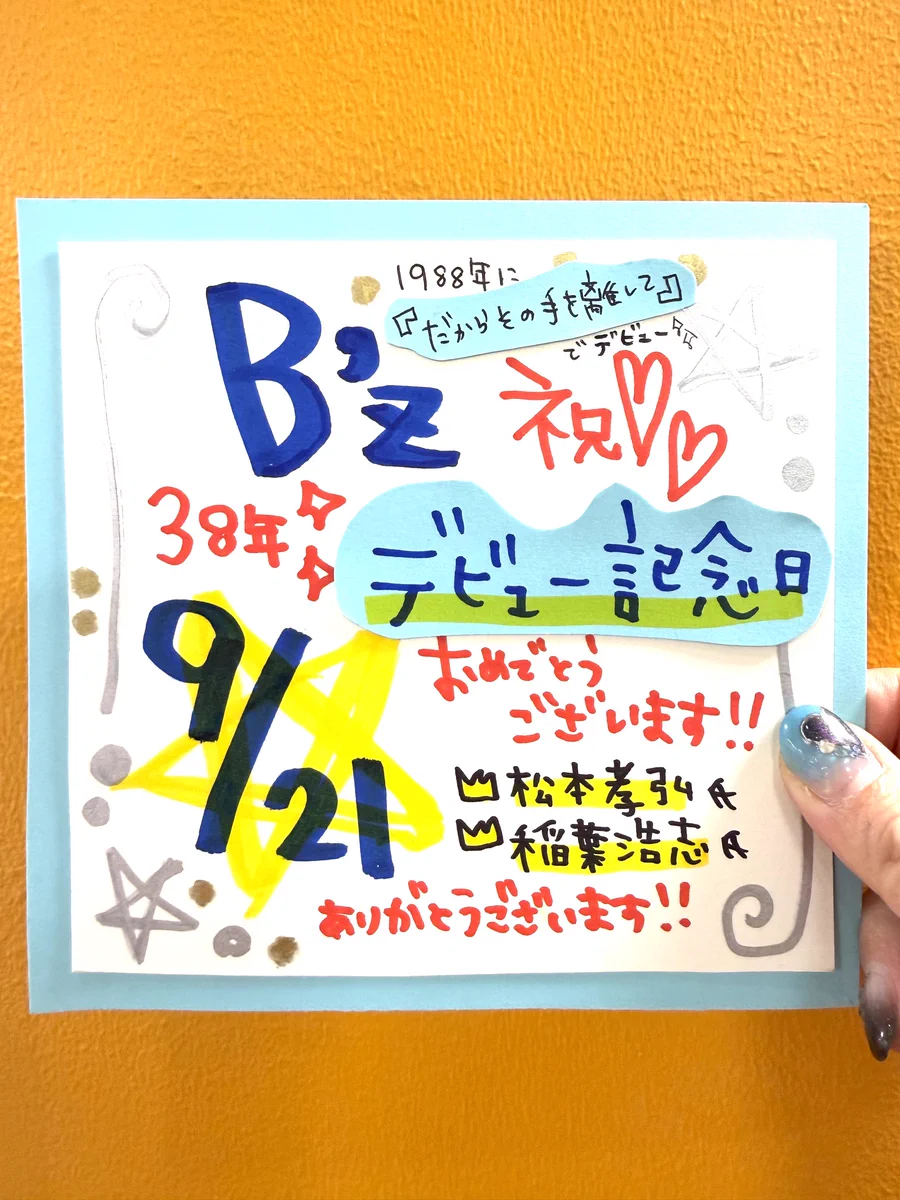 1988年に
『だからその手を離して』
でデビュー
B'z
祝
38年
デビュー記念日
9/21
おめでとう
ございます!!
松本孝弘氏
稲葉浩志氏
ありがとうございます!!